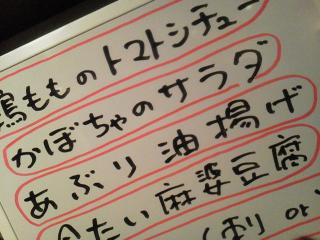 鶏もものトマトシチュー
かぼちゃのサラダ
あぶり油揚げ
冷たい麻婆豆腐